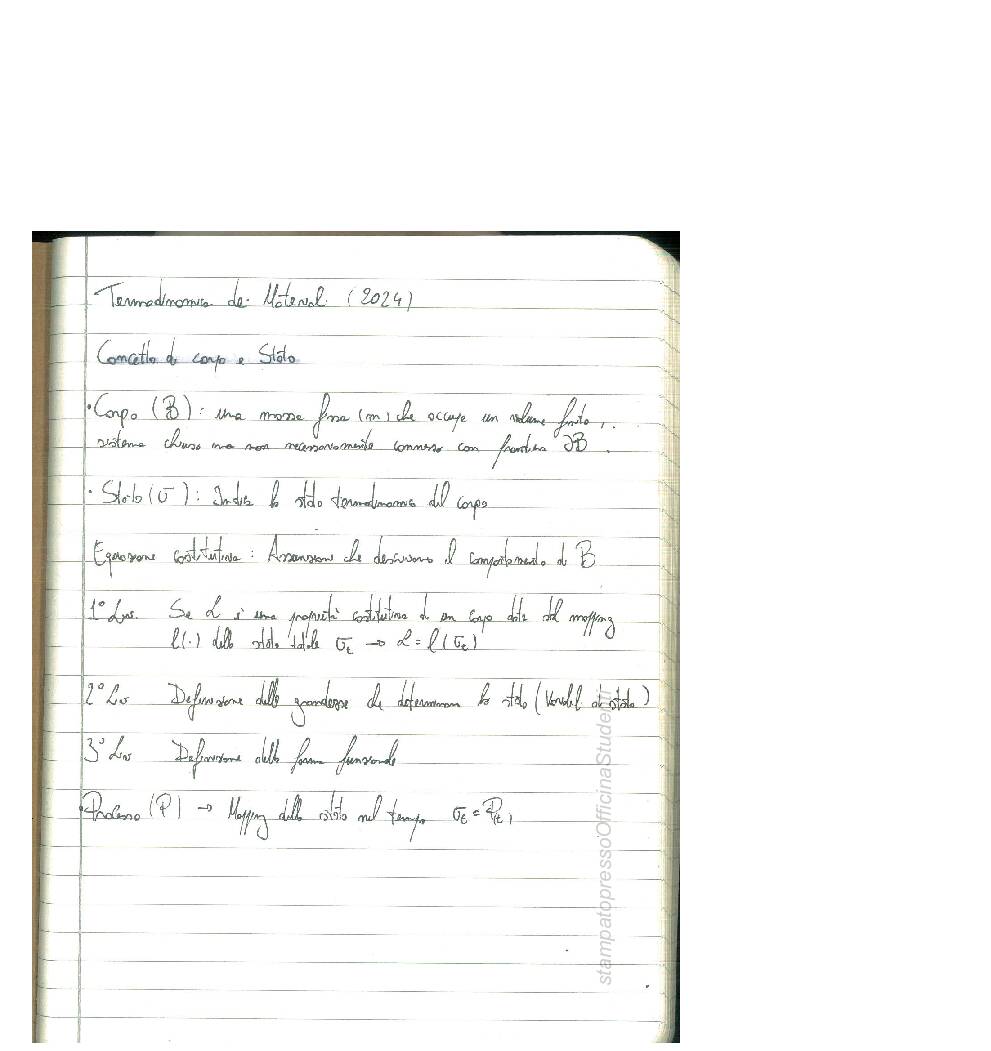 Termodinamica dei Materiali (2024)
Concetto di corpo e Stato
• Corpo (B): una massa fissa (m) che occupa un volume finito,
sistema chiuso ma non necessariamente connesso con frontiera ∂B.
• Stato (σ): Indica lo stato termodinamico del corpo
Equazione costitutiva: Assunzioni che descrivono il comportamento di B
1° Liv. Se L è una proprietà costitutiva di un corpo data dal mapping
l(·) dello stato totale σt → L = l(σt)
2° Liv Definizione delle grandezze che determinano lo stato (Variabili di stato)
3° Liv Definizione della forma funzionale
• Processo (P) → Mapping dello stato nel tempo σt = P(t)
stampatopressoOfficinaStudenti